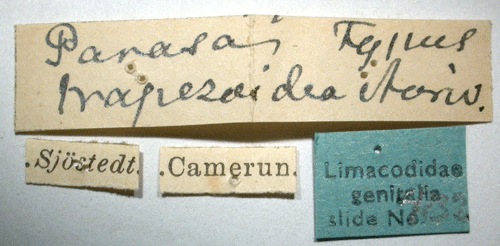 Parasa Typus
trapezoidea Auriv.
.Sjöstedt.
.Camerun.
Limacodidae
genitalia
slide No.